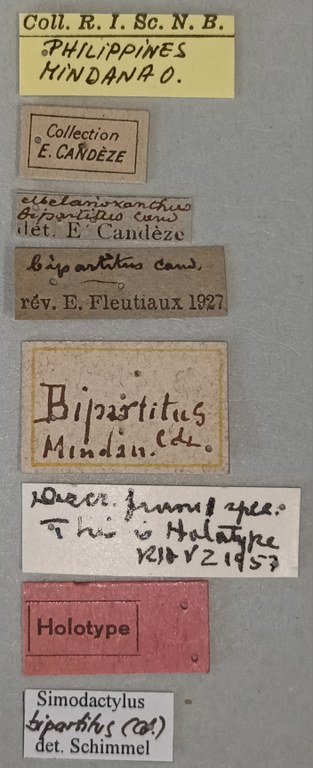 Coll. R. I. Sc. N. B.
PHILIPPINES
MINDANAO.
Collection
E. CANDÈZE
Melanoxanthus
bipartitus Cand
dét. E. Candèze
bipartitus Cand.
rév. E. Fleutiaux 1927
Bipartitus
Mindan. Cdz.
Descr. from 1 spec.
This is Holotype
RHVZ 1957
Holotype
Simodactylus
bipartitus (Cd.)
det. Schimmel